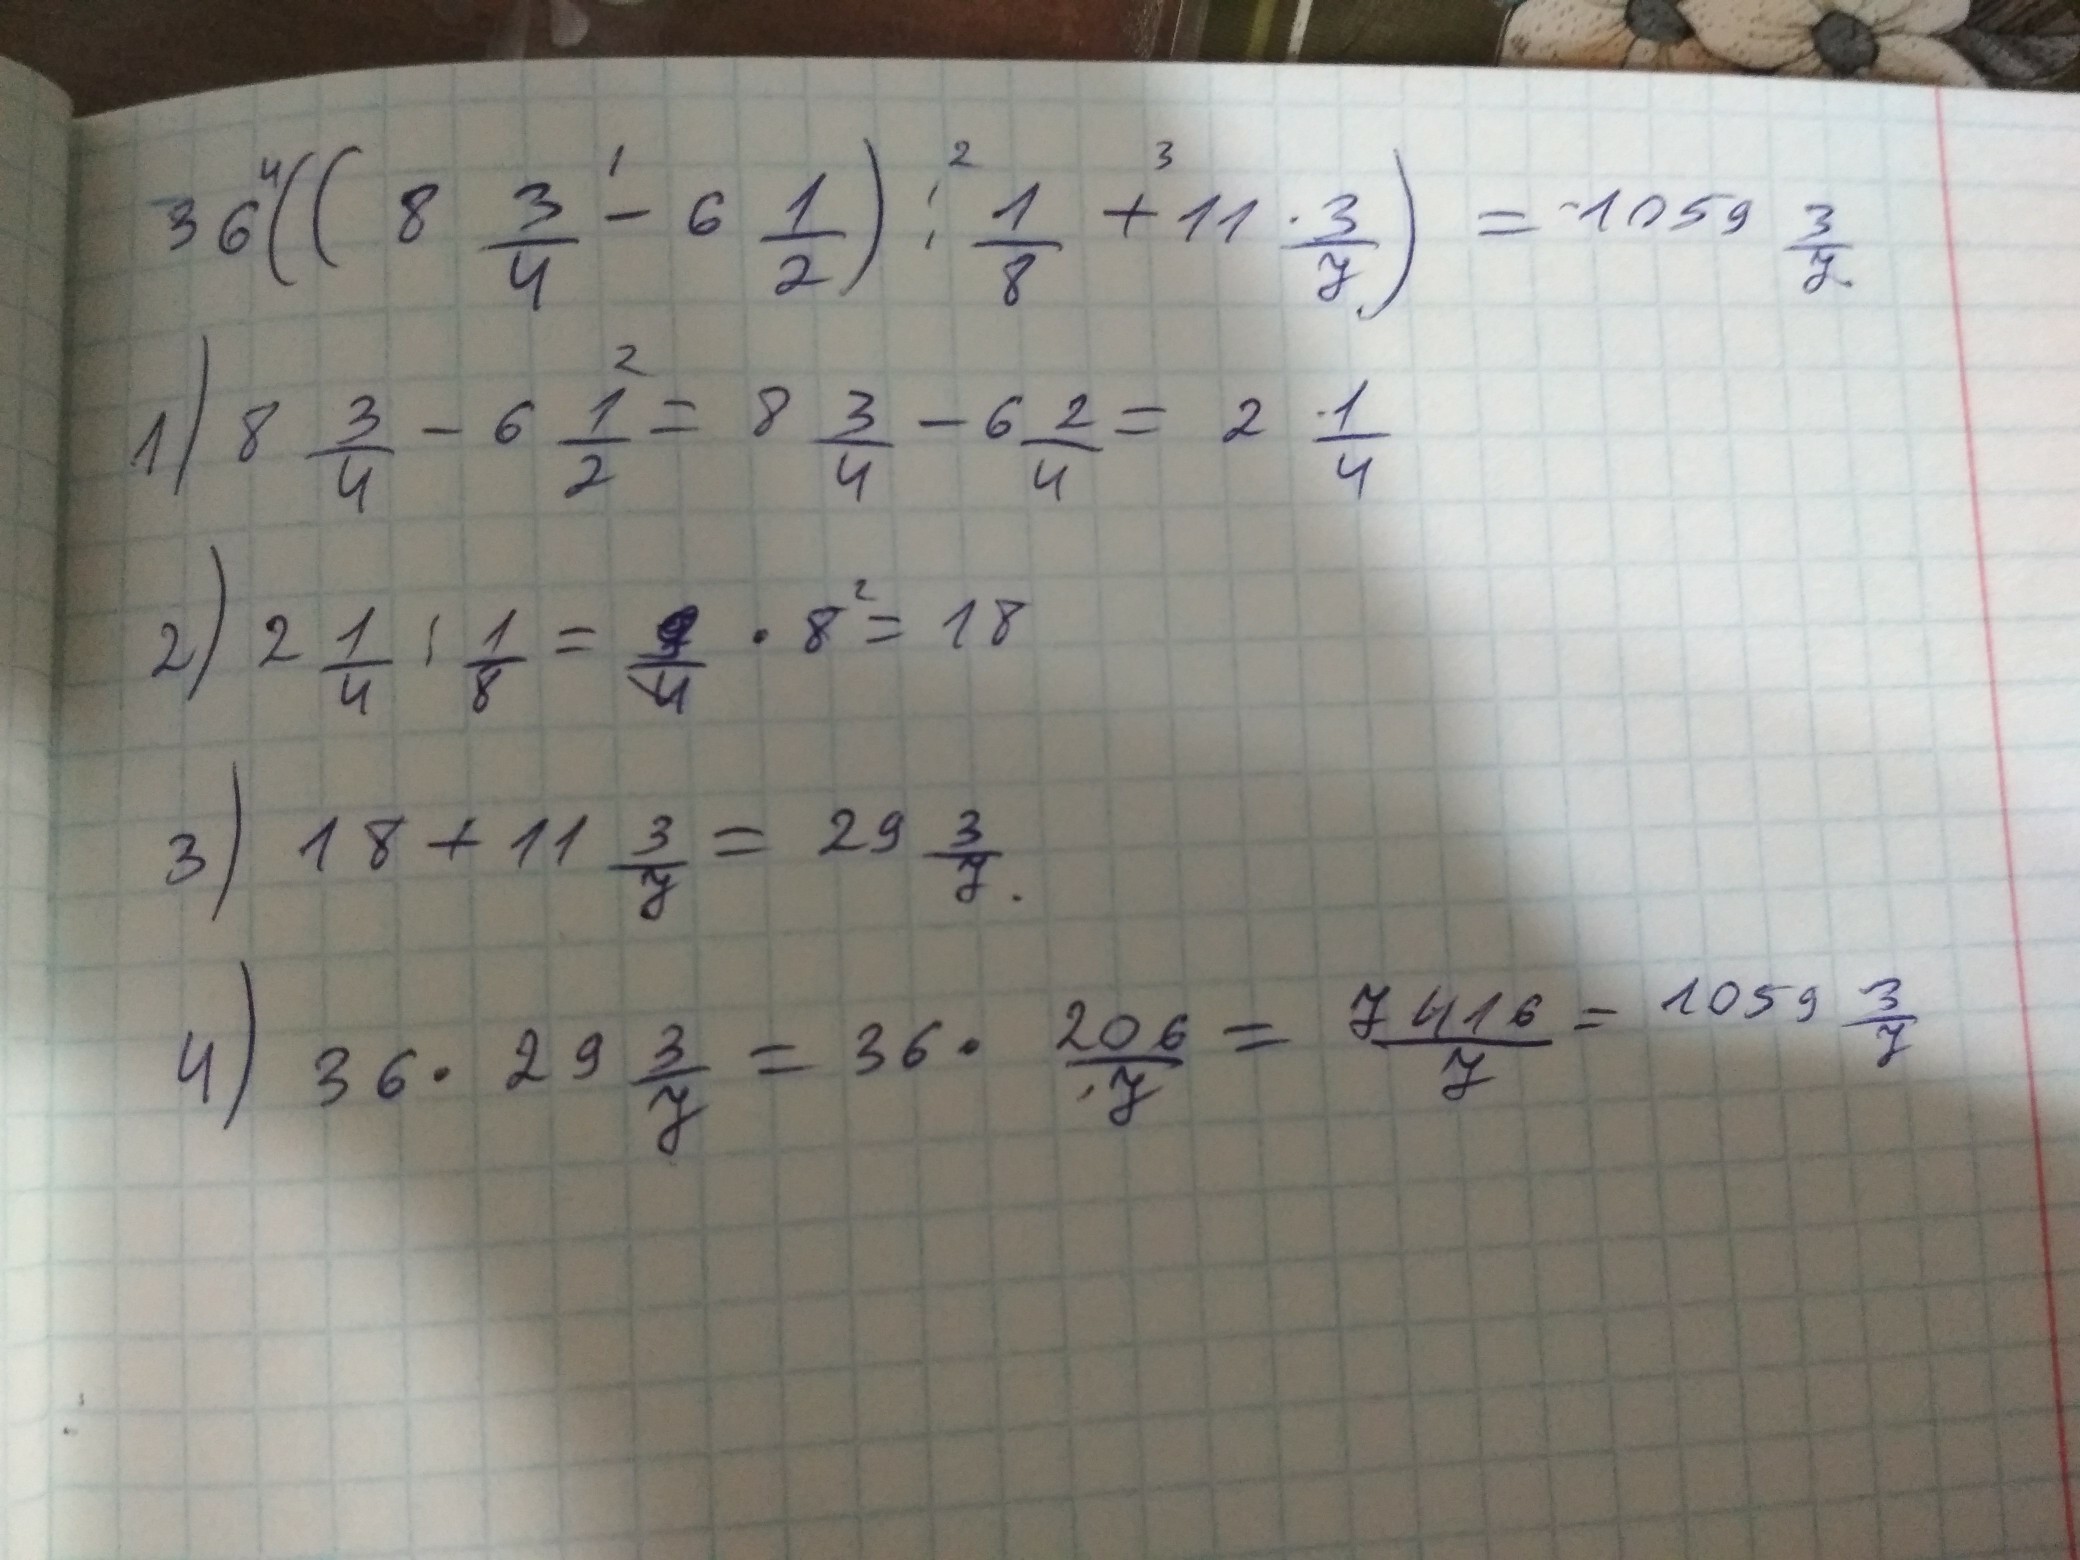 36((8 3/4 - 6 1/2) : 1/8 + 11 3/7) = 1059 3/7
1) 8 3/4 - 6 1/2 = 8 3/4 - 6 2/4 = 2 1/4
2) 2 1/4 : 1/8 = 9/4 · 8 = 18
3) 18 + 11 3/7 = 29 3/7.
4) 36 · 29 3/7 = 36 · 206/7 = 7416/7 = 1059 3/7